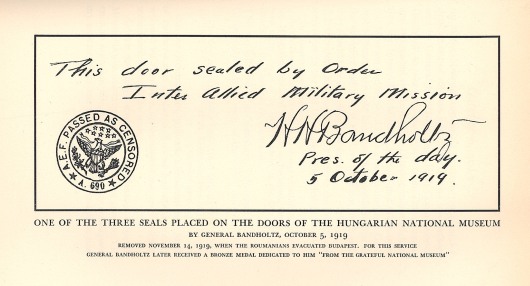 This door sealed by Order
Inter Allied Military Mission
H H Bandholtz
Pres. of the day.
5 October 1919.
A.E.F. PASSED AS CENSORED
A. 690
ONE OF THE THREE SEALS PLACED ON THE DOORS OF THE HUNGARIAN NATIONAL MUSEUM
BY GENERAL BANDHOLTZ, OCTOBER 5, 1919
REMOVED NOVEMBER 14, 1919, WHEN THE ROUMANIANS EVACUATED BUDAPEST. FOR THIS SERVICE
GENERAL BANDHOLTZ LATER RECEIVED A BRONZE MEDAL DEDICATED TO HIM "FROM THE GRATEFUL NATIONAL MUSEUM"